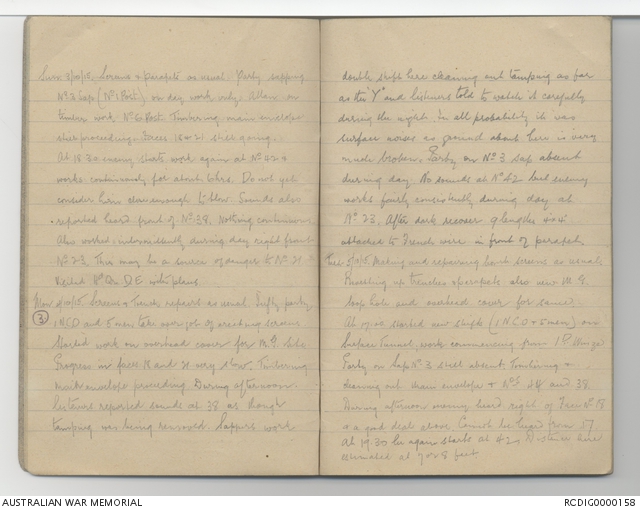 Sun 3/10/15. Screens & parapets as usual. Party sapping
No 3 Sap (No 1 Post) on day work only. Allan on
timber work No 6 Post. Timbering main envelope
still proceeding. Faces 18 & 21 still going.
At 18.30 enemy starts work again at No 42 &
works continuously for about 6 hrs. Do not yet
consider him close enough to blow. Sounds also
reported heard front of No 38. Nothing continuous.
Also worked intermittently during day right front
No 23. This may be a source of danger to No 21
Visited with plans
Mon 4/10/15. Screens & Trench repairs as usual. Fifty party
(3) 1 NCO and 5 men take over job of erecting screens
Started work on overhead cover for M.G. site
Progress in faces 18 and 21 very slow. Timbering
main envelope proceeding. During afternoon
listeners reported sounds at 38 as though
tamping was being removed. Sappers work
double shift here cleaning out tamping as far
as the "Y" and listeners told to watch it carefully
during the night. In all probability it was
surface noises as ground about here is very
much broken. Party on No 3 sap absent
during day. No sounds at No 42 but enemy
works fairly consistently during day at
No 23. After dark recover 9 lengths 4 x 4
attached to Trench were in front of parapet.
Tues 5/10/15. Making and repairing screens as usual.
trenches & parapets also new M.G.
loop hole and overhead cover for same.
At 17.00 started new shift (1 N.C.O & 5 men) on
Surface Tunnel, work commencing from
Party on Sap No 3 still absent. Timbering &
cleaning out main envelope & Nos 44 and 38
During afternoon enemy heard right of No 18
& a good deal above. Cannot be heard from 17
At 19.30 he again starts at 42. Distance here
estimated at 7 or 8 feet.
AUSTRALIAN WAR MEMORIAL
RCDIG0000158